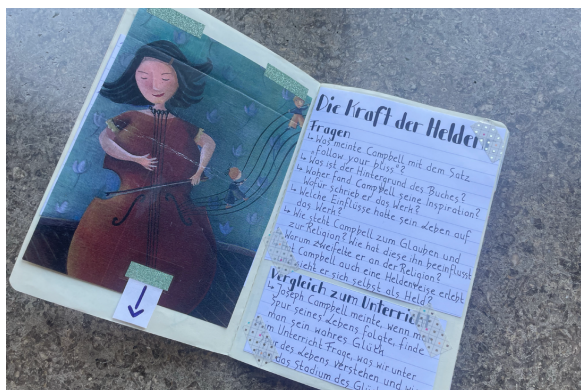 Die Kraft der Helden
Fragen
↳ Was meinte Campbell mit dem Satz
„Follow your bliss“?
↳ Was ist der Hintergrund des Buches?
↳ Woher fand Campbell seine Inspiration?
Wofür schrieb er das Werk?
↳ Welche Einflüsse hatte sein Leben auf
das Werk?
↳ Wie steht Campbell zum Glauben und
zur Religion? Wie hat diese ihn beeinflusst
Warum zweifelte er an der Religion?
Campbell auch eine Heldenreise erlebt
er sich selbst als Held?
Vergleich zum Unterricht
↳ Joseph Campbell meinte, wenn
Spur seines Lebens folgte, finde
man sein wahres Glück
Unterricht Frage, was wir unter
des Lebens verstehen und
das Stadium des